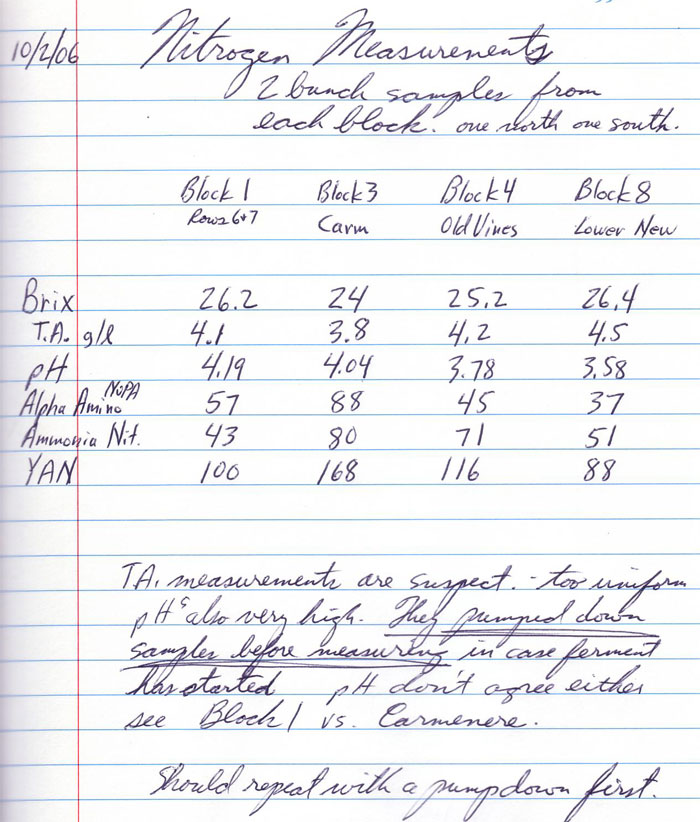 10/2/06 Nitrogen Measurements
2 bunch samples from
each block. one north one south.
Block 1 Block 3 Block 4 Block 8
Rows 6+7 Carm Old Vines Lower New
Brix 26.2 24 25.2 26.4
T.A. g/l 4.1 3.8 4.2 4.5
pH 4.19 4.04 3.78 3.58
Alpha Amino NOPA 57 88 45 37
Ammonia Nit. 43 80 71 51
YAN 100 168 116 88
T.A. measurements are suspect. - too uniform
pHs also very high. They pumped down
samples before measuring in case ferment
has started pH don't agree either
see Block 1 vs. Carmenere.
Should repeat with a pumpdown first.